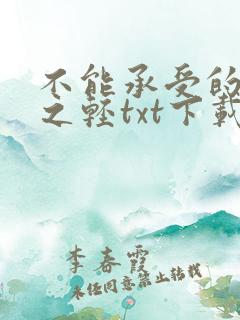 不能承受的
之轻txt下載
李春霞
未任同意禁止转载